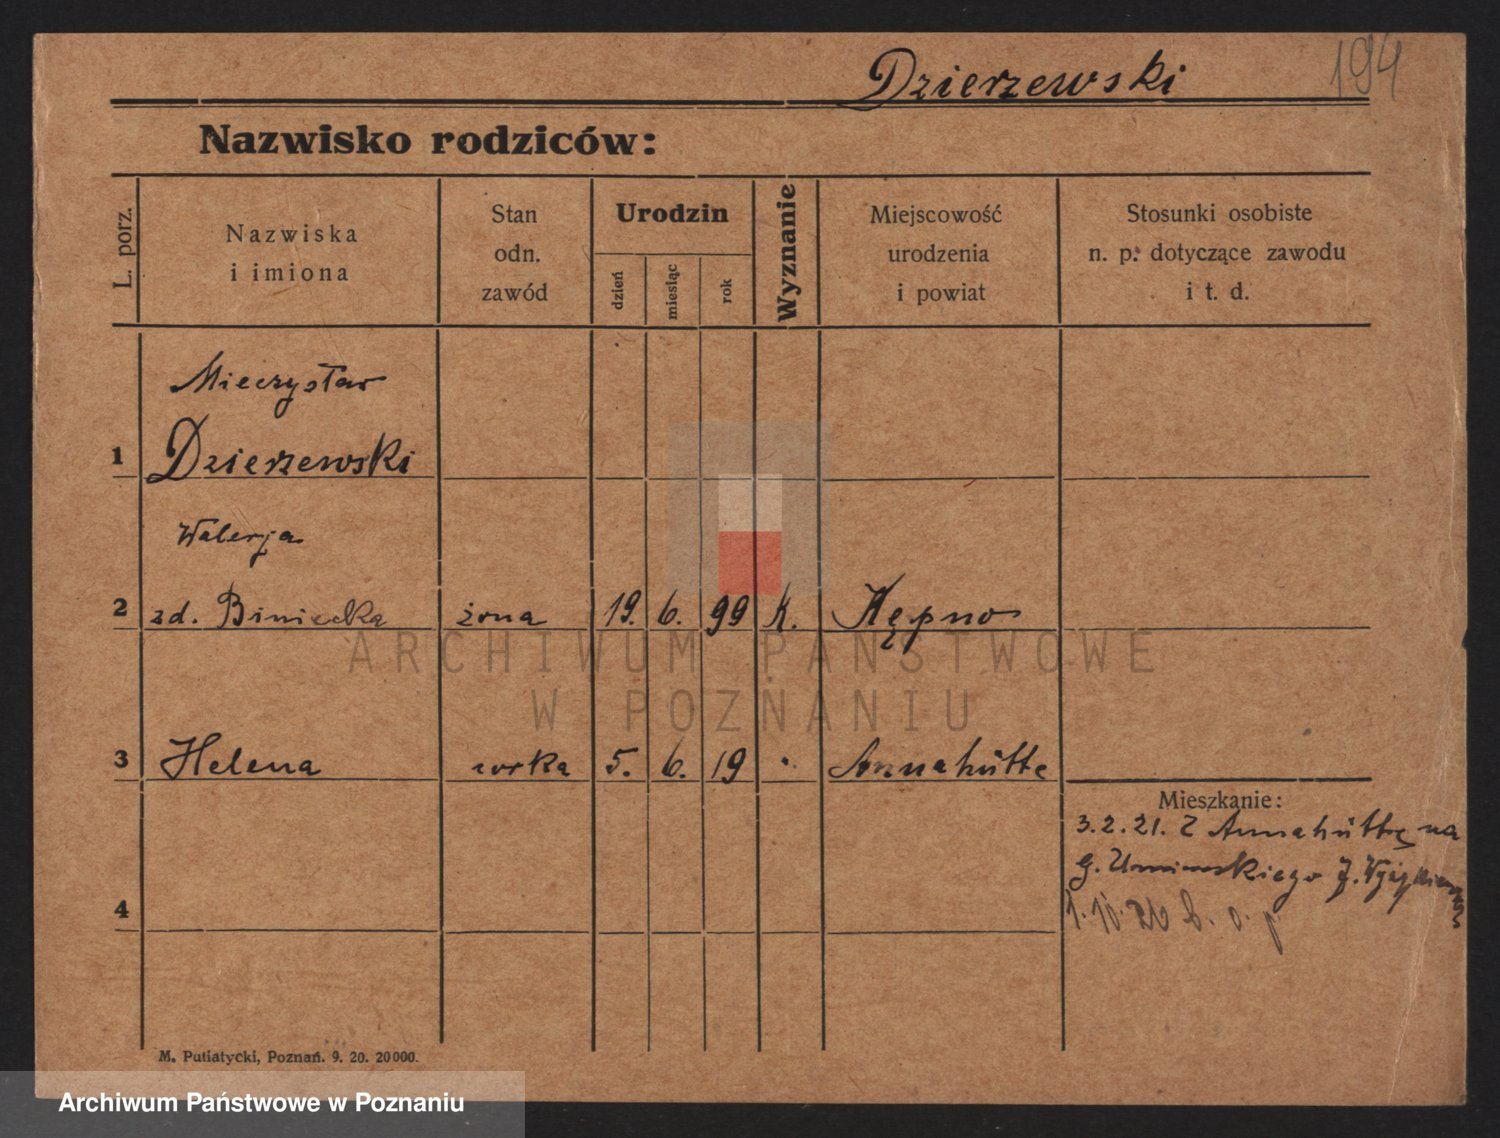 Dzierzewski
194
Nazwisko rodziców:
L. porz.
Nazwiska
i imiona
Stan
odn.
zawód
Urodzin
dzień
miesiąc
rok
Wyznanie
Miejscowość
urodzenia
i powiat
Stosunki osobiste
n. p. dotyczące zawodu
i t. d.
Mieczysław
1 Dzierzewski
Walerja
2 zd. Biniecka żona 19. 6. 99 K. Kępno
3 Helena corka 5. 6. 19 " Annahütte
Mieszkanie:
3.2.21. Z Annahüttę na
G. Umińskiego
4
M. Putiatycki, Poznań. 9. 20. 20000.
ARCHIWUM PAŃSTWOWE
W POZNANIU
Archiwum Państwowe w Poznaniu